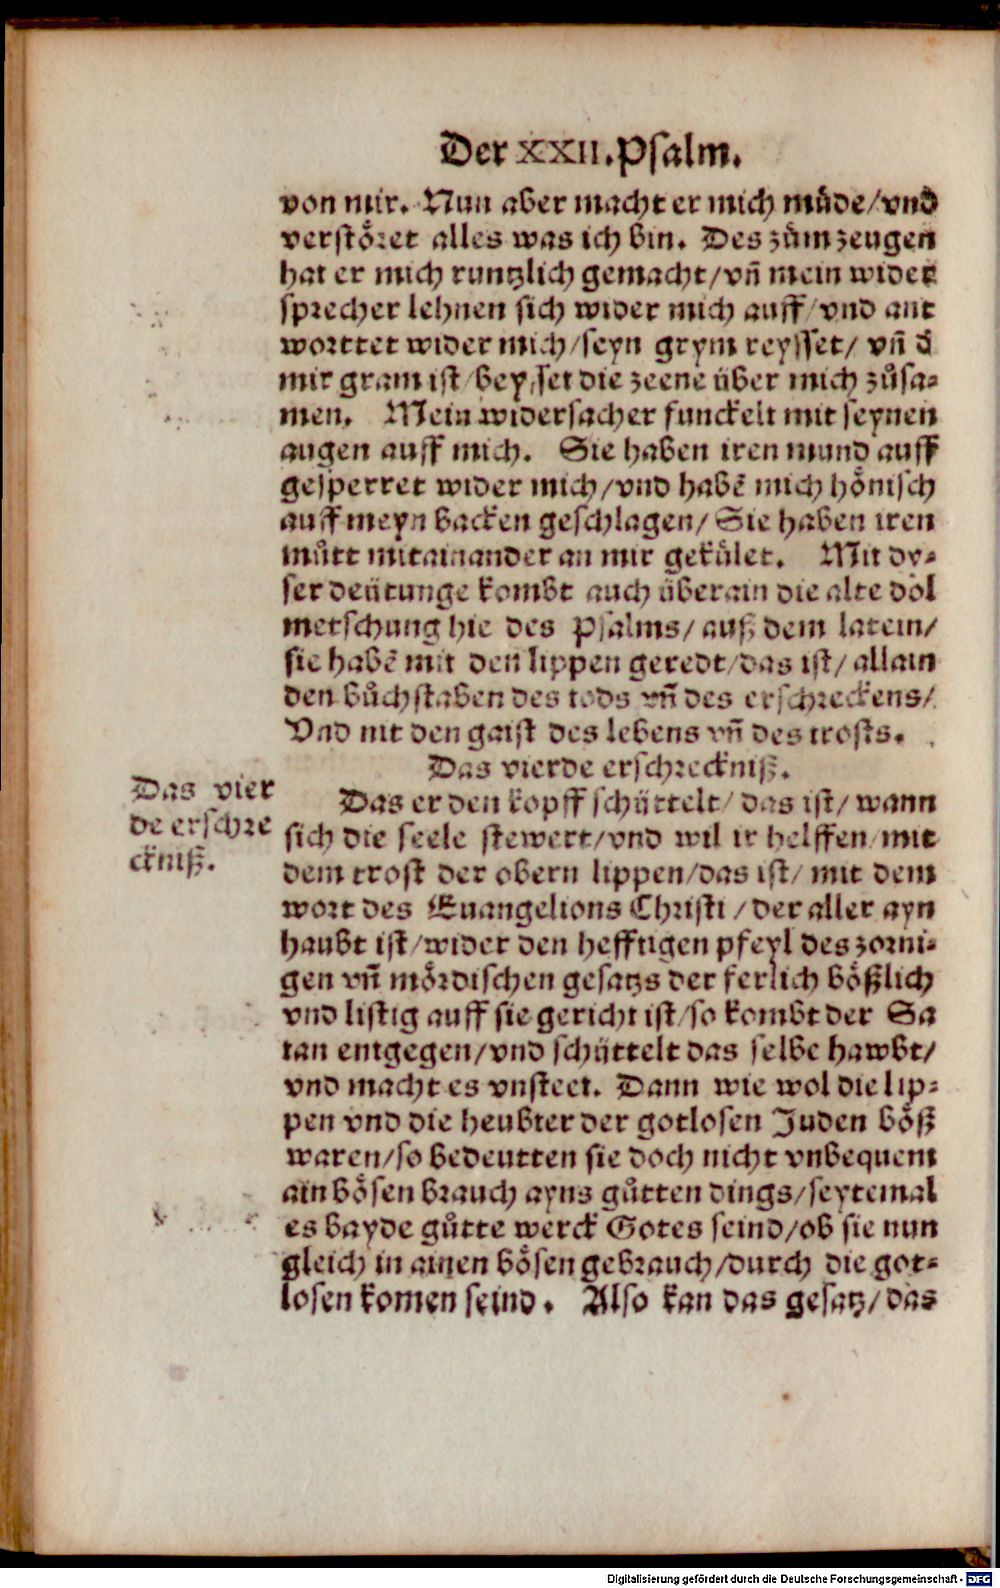 Der XXII. Psalm.
von mir. Nun aber macht er mich müde/vnd
verstöret alles was ich bin. Des zům zeugen
hat er mich runtzlich gemacht/vñ mein wider
sprecher lehnen sich wider mich auff/vnd ant
worttet wider mich/seyn grym reysset/ vñ d̃
mir gram ist/beysset die zeene über mich zůsa-
men. Mein widersacher funckelt mit seynen
augen auff mich. Sie haben iren mund auff
gesperret wider mich/vnd habẽ mich hönisch
auff meyn backen geschlagen/ Sie haben iren
můtt mitainander an mir gekület. Mit dy-
ser deütunge kombt auch überain die alte dol
metschung hie des Psalms/ auß dem latein/
sie habẽ mit den lippen geredt/das ist/ allain
den bůchstaben des tods vñ des erschreckens/
Vnd nit den gaist des lebens vñ des trosts.
Das vierde erschreckniß.
Das vier
de erschre
ckniß.
Das er den kopff schüttelt/ das ist/ wann
sich die seele stewert/vnd wil ir helffen/mit
dem trost der obern lippen/das ist/ mit dem
wort des Euangelions Christi/der aller ayn
haubt ist/wider den hefftigen pfeyl des zorni-
gen vñ mördischen gesatzs der ferlich bößlich
vnd listig auff sie gericht ist/so kombt der Sa
tan entgegen/vnd schüttelt das selbe hawbt/
vnd macht es vnsteet. Dann wie wol die lip-
pen vnd die heubter der gotlosen Juden böß
waren/so bedeutten sie doch nicht vnbequem
ain bösen brauch ayns gůtten dings/seytemal
es bayde gůtte werck Gotes seind/ob sie nun
gleich in ainen bösen gebrauch/durch die got-
losen komen seind. Also kan das gesatz/das
Digitalisierung gefördert durch die Deutsche Forschungsgemeinschaft - DFG